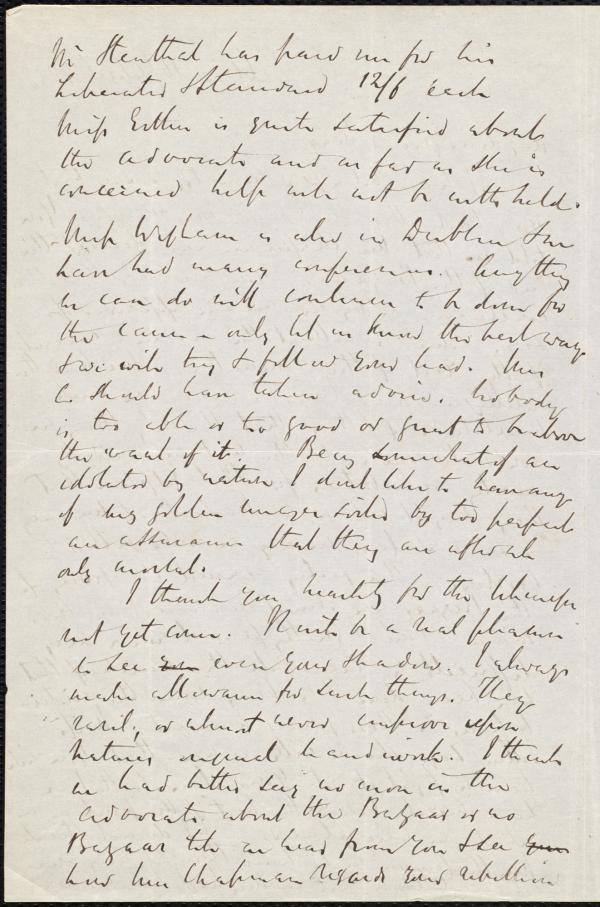 Mr Steinthal has paid me for his
Liberator & Standard 12/6 each
Miss Estlin is quite satisfied about
the Advocate and as far as she is
concerned help will not be withheld.
Miss Wigham is also in Dublin & we
have had many conferences. Anything
we can do will continue to be done for
the cause - only let us know the best way
& we will try & follow your lead. Mrs
C. should have taken advice. Nobody
is too able or too good or great to be above
the want of it. Being somewhat of an
idolator by nature I don't like to have any
of my golden images soiled by too perfect
an assurance that they are after all
only mortal.
I thank you heartily for the likeness
not yet come. It will be a real pleasure
to see even your shadow. I always
make allowance for such things. They
rarely, or almost never improve upon
Nature's original handiwork. I think
we had better say no more in the
Advocate about the Bazaar or no
Bazaar till we hear from you & see
how Mrs Chapman regards your rebellion